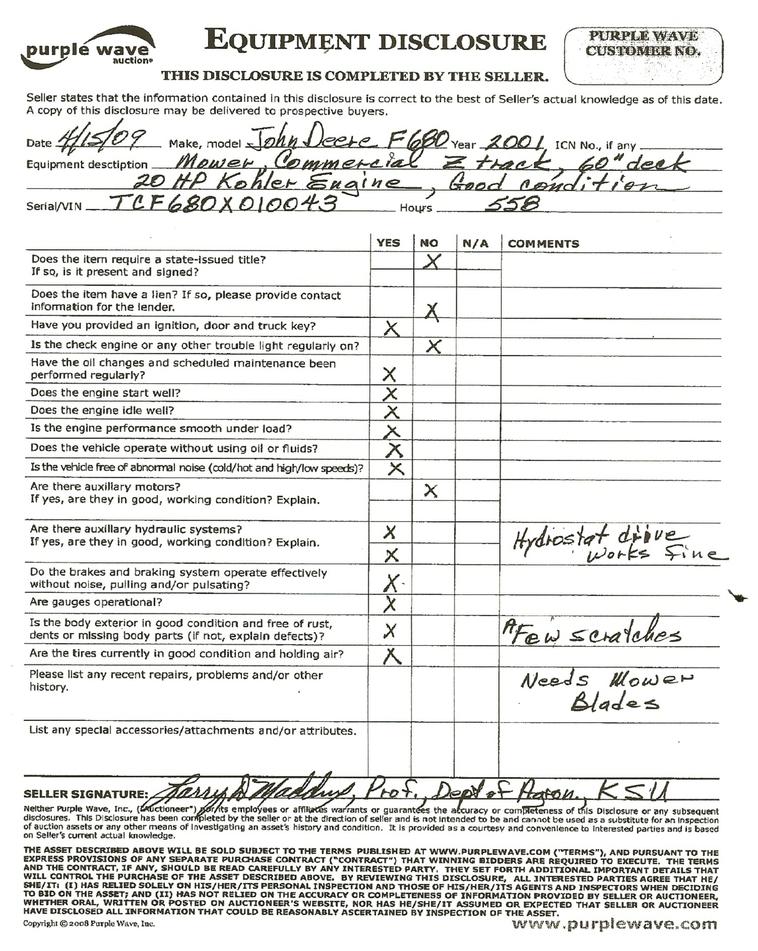 purple wave
auction®
EQUIPMENT DISCLOSURE
PURPLE WAVE
CUSTOMER NO.
THIS DISCLOSURE IS COMPLETED BY THE SELLER.
Seller states that the information contained in this disclosure is correct to the best of Seller's actual knowledge as of this date.
A copy of this disclosure may be delivered to prospective buyers.
Date 4/15/09 Make, model John Deere F680 Year 2001 ICN No., if any
Equipment desctiption Mower, Commercial Z track, 60" deck
20 HP Kohler Engine, Good condition
Serial/VIN TCF680X010043 Hours 558
YES NO N/A COMMENTS
Does the item require a state-issued title? X
If so, is it present and signed?
Does the item have a lien? If so, please provide contact
information for the lender. X
Have you provided an ignition, door and truck key? X
Is the check engine or any other trouble light regularly on? X
Have the oil changes and scheduled maintenance been
performed regularly? X
Does the engine start well? X
Does the engine idle well? X
Is the engine performance smooth under load? X
Does the vehicle operate without using oil or fluids? X
Is the vehicle free of abnormal noise (cold/hot and high/low speeds)? X
Are there auxillary motors? X
If yes, are they in good, working condition? Explain.
Are there auxillary hydraulic systems? X Hydrostat drive
If yes, are they in good, working condition? Explain. X works fine
Do the brakes and braking system operate effectively
without noise, pulling and/or pulsating? X
Are gauges operational? X
Is the body exterior in good condition and free of rust,
dents or missing body parts (if not, explain defects)? X A Few scratches
Are the tires currently in good condition and holding air? X
Please list any recent repairs, problems and/or other Needs Mower
history. Blades
List any special accessories/attachments and/or attributes.
SELLER SIGNATURE: Larry D Maddux, Prof., Dept of Agron, KSU
Neither Purple Wave, Inc., ("Auctioneer") nor its employees or affiliates warrants or guarantees the accuracy or completeness of this Disclosure or any subsequent
disclosures. This Disclosure has been completed by the seller or at the direction of seller and is not intended to be and cannot be used as a substitute for an inspection
of auction assets or any other means of investigating an asset's history and condition. It is provided as a courtesy and convenience to interested parties and is based
on Seller's current actual knowledge.
THE ASSET DESCRIBED ABOVE WILL BE SOLD SUBJECT TO THE TERMS PUBLISHED AT WWW.PURPLEWAVE.COM ("TERMS"), AND PURSUANT TO THE
EXPRESS PROVISIONS OF ANY SEPARATE PURCHASE CONTRACT ("CONTRACT") THAT WINNING BIDDERS ARE REQUIRED TO EXECUTE. THE TERMS
AND THE CONTRACT, IF ANY, SHOULD BE READ CAREFULLY BY ANY INTERESTED PARTY. THEY SET FORTH ADDITIONAL IMPORTANT DETAILS THAT
WILL CONTROL THE PURCHASE OF THE ASSET DESCRIBED ABOVE. BY REVIEWING THIS DISCLOSURE, ALL INTERESTED PARTIES AGREE THAT HE/
SHE/IT: (I) HAS RELIED SOLELY ON HIS/HER/ITS PERSONAL INSPECTION AND THOSE OF HIS/HER/ITS AGENTS AND INSPECTORS WHEN DECIDING
TO BID ON THE ASSET; AND (II) HAS NOT RELIED ON THE ACCURACY OR COMPLETENESS OF INFORMATION PROVIDED BY SELLER OR AUCTIONEER,
WHETHER ORAL, WRITTEN OR POSTED ON AUCTIONEER'S WEBSITE, NOR HAS HE/SHE/IT ASSUMED OR EXPECTED THAT SELLER OR AUCTIONEER
HAVE DISCLOSED ALL INFORMATION THAT COULD BE REASONABLY ASCERTAINED BY INSPECTION OF THE ASSET.
Copyright © 2008 Purple Wave, Inc. www.purplewave.com